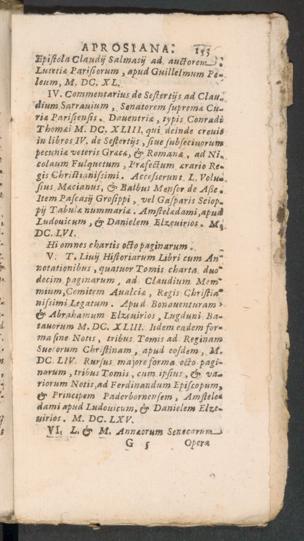 APROSIANA. 155
Epistola Claudij Salmasij ad auctorem.
Lutetiæ Parisiorum, apud Guillelmum Pe-
leum, M. DC. XL.
IV. Commentarius de Sestertijs ad Clau-
dium Sarrauium, Senatorem supremæ Cu-
riæ Parisiensis. Dauentriæ, typis Conradi
Thomæi M. DC. XLIII. qui deinde creuit
in libros IV. de Sestertijs, siue subsectiuorum
pecuniæ veteris Græcæ, & Romanæ, ad Ni-
colaum Fulquetum, Præfectum ærario Re-
gis Christianissimi. Accesserunt L. Volu-
sius Mæcianus, & Balbus Mensor de Asse.
Item Pascasij Grosippi, vel Gasparis Sciop-
pij Tabulæ nummariæ. Amstelædami, apud
Ludouicum, & Danielem Elzeuirios. M.
DC. LVI.
Hi omnes chartis octo paginarum.
V. T. Liuij Historiarum Libri cum An-
notationibus, quatuor Tomis charta duo
decim paginarum, ad Claudium Mem-
mium, Comitem Auaiciæ, Regis Christia-
nissimi Legatum. Apud Bonauenturam
& Abrahamum Elzeuirios, Lugduni Ba-
tauorum M. DC. XLIII. Idem eadem for-
ma sine Notis, tribus Tomis ad Reginam
Suecorum Christinam, apud eosdem, M.
DC. LIV. Rursus maiore forma octo pagi-
narum, tribus Tomis, cum ipsius, & va-
riorum Notis, ad Ferdinandum Episcopum,
& Principem Paderbornensem, Amstelæ-
dami apud Ludouicum, & Danielem Elze-
uirios. M. DC. LXV.
VI. L. & M. Annæorum Senecarum
G 5 Opera